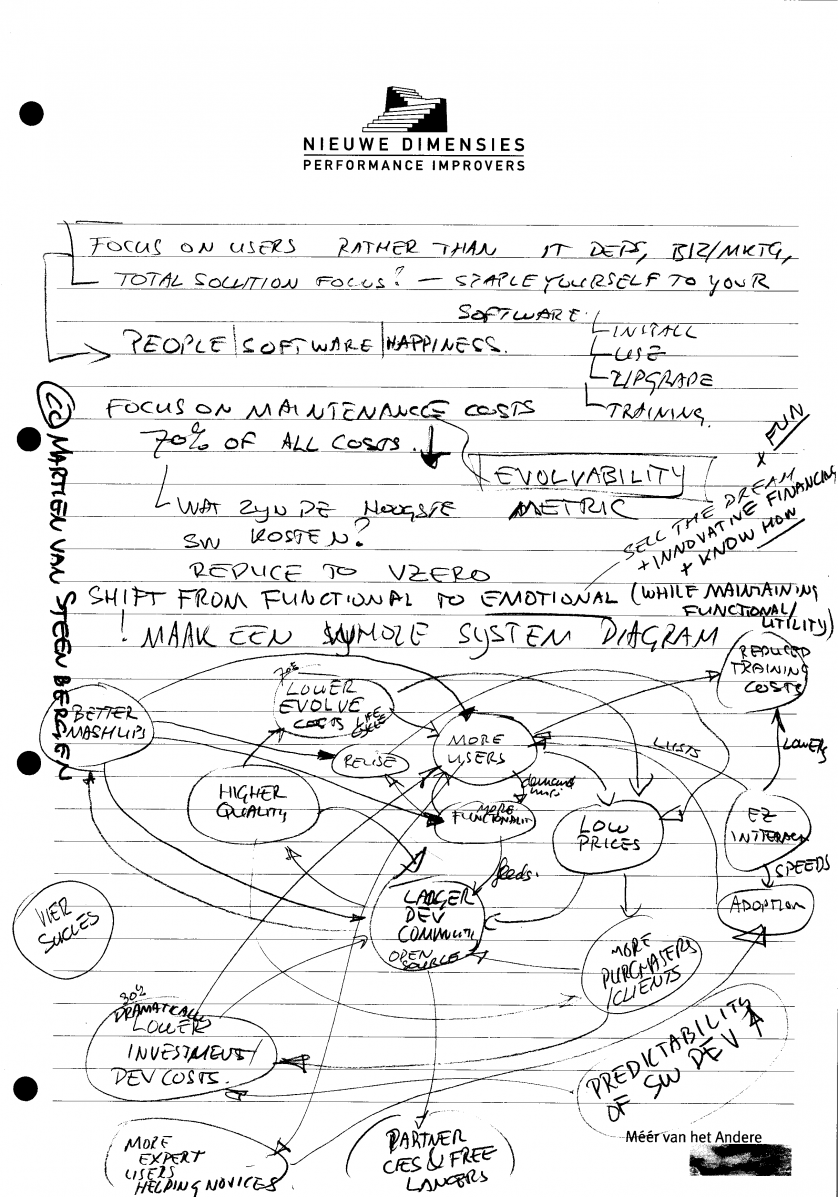 NIEUWE DIMENSIES
PERFORMANCE IMPROVERS
FOCUS ON USERS RATHER THAN IT DEPS, BIZ/MKTG,
TOTAL SOLUTION FOCUS? — STAPLE YOURSELF TO YOUR
SOFTWARE
INSTALL
USE
UPGRADE
TRAINING.
PEOPLE | SOFTWARE | HAPPINESS.
FOCUS ON MAINTENANCE COSTS
70% OF ALL COSTS.
EVOLVABILITY
METRIC
WAT ZYN DE HOOGSTE
SW KOSTEN?
REDUCE TO VZERO
x FUN
SELL THE DREAM
+ INNOVATIVE FINANCING
+ KNOW HOW
SHIFT FROM FUNCTIONAL TO EMOTIONAL (WHILE MAINTAINING
FUNCTIONAL/
UTILITY)
! MAAK EEN WHOLE SYSTEM DIAGRAM
(CC) MARTIEN VAN STEENBERGEN
BETTER
MASHUPS
70%
LOWER
EVOLVE
COSTS LIFE
CYCLE
REUSE
MORE
USERS
REDUCED
TRAINING
COSTS
LOWERS
HIGHER
QUALITY
MORE
FUNCTIONALITY
LOW
PRICES
EZ
INTERACN
SPEEDS
feeds.
LARGER
DEV
COMMUNITY
OPEN
SOURCE
ADOPTION
VIER
SUCCES
MORE
PURCHASERS
/CLIENTS
30%
DRAMATICALLY
LOWER
INVESTMENT/
DEV COSTS.
PREDICTABILITY
OF SW DEV
MORE
EXPERT
USERS
HELPING NOVICES
PARTNER
CIES & FREE
LANCERS
Méér van het Andere